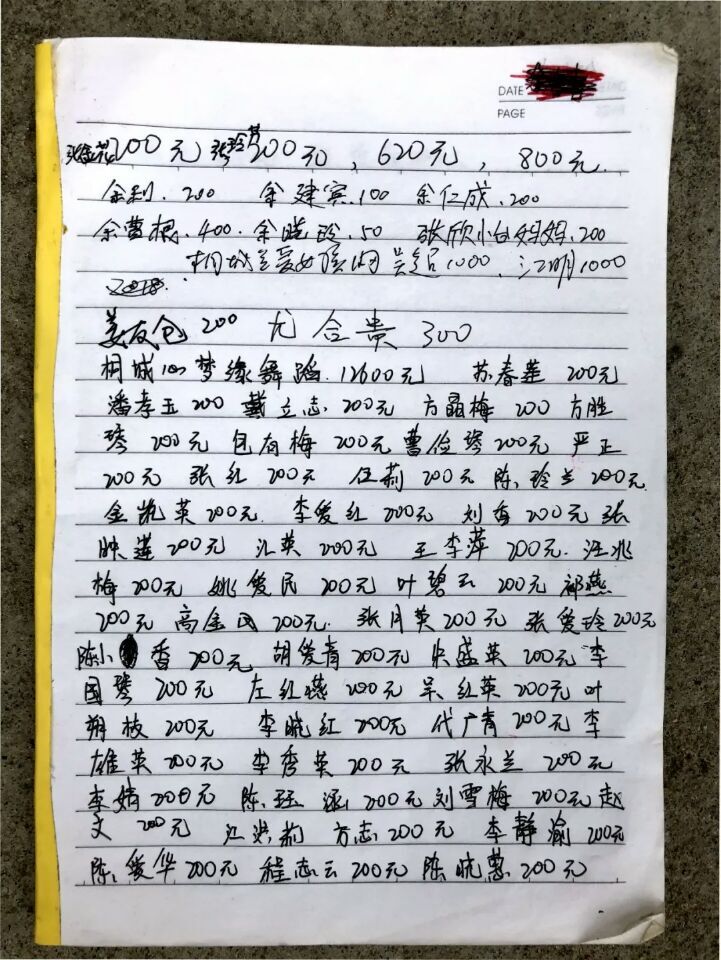 DATE
PAGE
张金花200元 张玲200元，620元，800元.
金利.200 余建宾.100 余仁成.200
余曹根.400.余晓玲.50 张欣怡妈妈.200
桐城关爱女孩网 吴超1000.江明1000
姜友包 200 尤合贵 300
桐城心梦缘舞蹈.12600元 苏春莲 200元
潘孝玉 200 戴立志 200元 方晶梅 200 方胜
琴 200元 包有梅 200元 曹俭琴 200元 严正
200元 张红 200元 伍莉 200元 陈玲兰 200元
金凯英 200元. 李爱红 200元 刘香 200元 张
映莲 200元 汇英 200元 王李萍 200元.汪兆
梅 200元 姚爱民 200元 叶碧云 200元 祁燕
200元 高金凤 200元. 张月英 200元 张爱玲 200元
陈小香 200元 胡爱青 200元 朱盛英 200元 李
国琴 200元 左红燕 200元 吴红英 200元 叶
翔枝 200元 李晓红 200元 代广青 200元 李
雄英 200元 李秀英 200元 张永兰 200元
李婧 200元 陈珏涵 200元 刘雪梅 200元 赵
文 200元 江洪莉 方志 200元 李静渝 200元
陈爱华 200元 程志云 200元 陈晓慧 200元